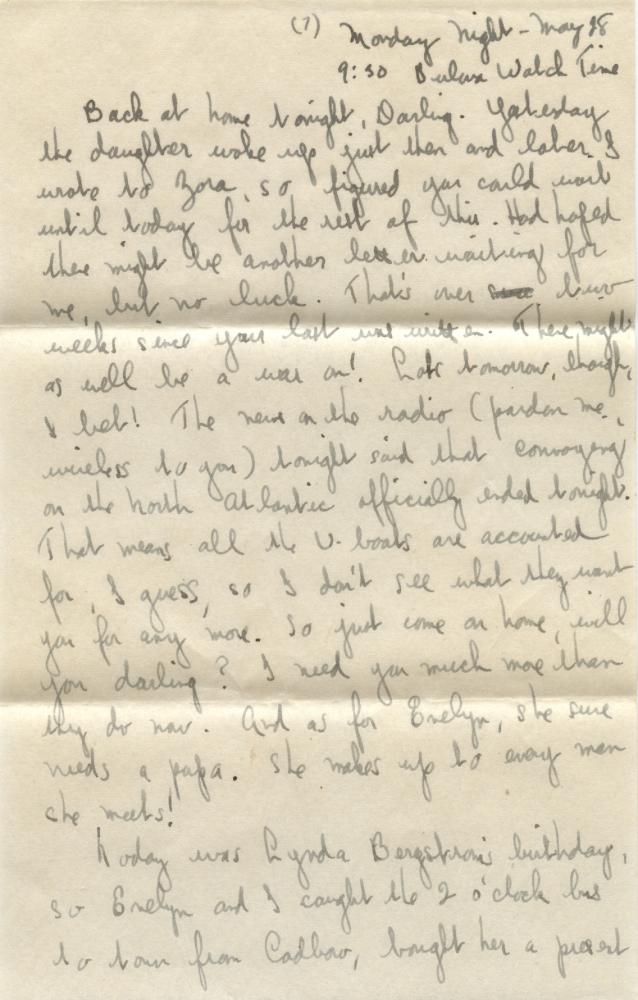 (7) Monday Night - May 28
9:30 Bulova Watch Time
Back at home tonight, Darling. Yesterday
the daughter woke up just then and later I
wrote to Zora, so figured you could wait
until today for the rest of this. Had hoped
there might be another letter waiting for
me, but no luck. That's over two
weeks since your last was written. There might
as well be a war on! Lots tomorrow, though,
I bet! The news on the radio (pardon me,
wireless to you) tonight said that convoying
on the North Atlantic officially ended tonight.
That means all the U-boats are accounted
for, I guess, so I don't see what they want
you for any more. So just come on home, will
you darling? I need you much more than
they do now. And as for Evelyn, she sure
needs a papa. She makes up to every man
she meets!
Today was Lynda Bergstrom's birthday,
so Evelyn and I caught the 2 o'clock bus
to town from Cadboro, bought her a present